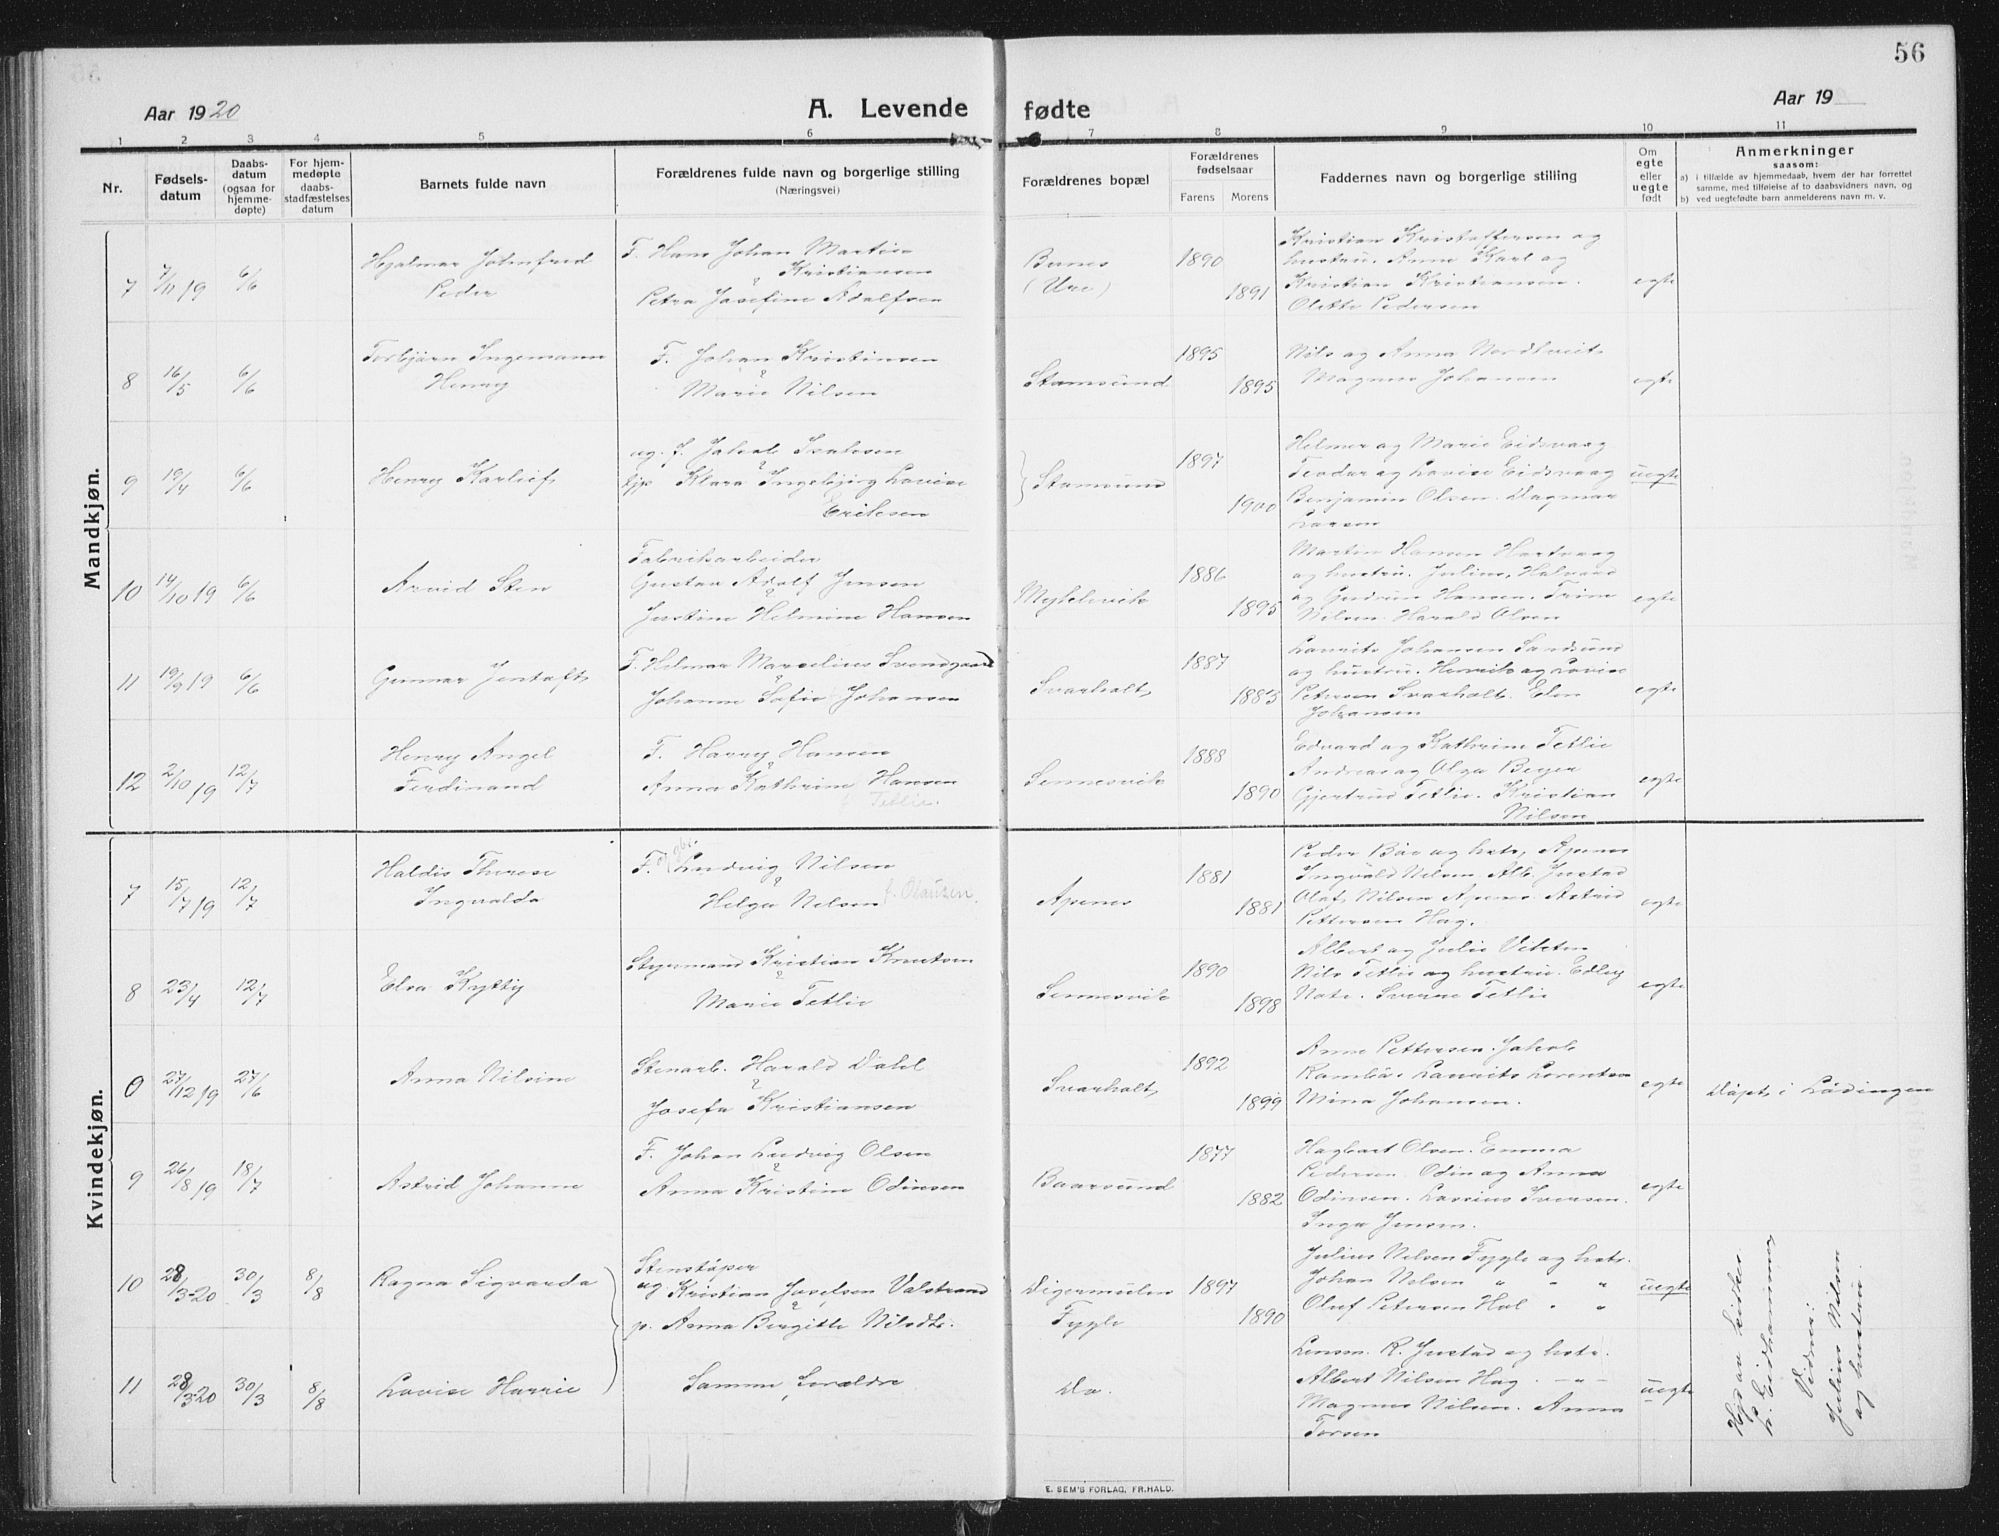 56
Aar 1920
A. Levende fødte
Aar 19
1 2 3 4 5 6 7 8 9 10 11
Nr.
Fødselsdatum
Daabsdatum (ogsaa for hjemmedøpte)
For hjemmedøpte daabsstadfæstelses datum
Barnets fulde navn
Forældrenes fulde navn og borgerlige stilling
(Næringsvei)
Forældrenes bopæl
Forældrenes fødselsaar
Farens Morens
Faddernes navn og borgerlige stilling
Om egte eller uegte født
Anmerkninger
saasom:
a) i tilfælde av hjemmedaab, hvem der har forrettet
samme, med tilføielse af to daabsvidners navn, og
b) ved uegtefødte barn anmelderens navn m. v.
Mandkjøn.
7 7/11 19 6/6
Hjalmar Johnfred
Peder
F. Hans Johan Martin
Kristiansen
Petra Josefine Adolfsen
(Ure)
1890
1891
Kristian Kristoffersen og
hustru. Anne Karl og
Kristian Kristiansen.
Olette Pedersen
egte
8 16/5 6/6
Torbjørn Ingemann
Henry
F. Johan Kristinsen
Marie Nilsen
Stamsund
1895
1895
Nils og Anna Nordtveit
Magnus Johansen
egte
9 19/4 6/6
Henry Karlief
ug. f. Jakob Isaksen
pje Klara Ingebjørg Lovise
Eriksen
Stamsund
1897
1900
Helmer og Marie Eidsvaag
Teodor og Lovise Eidsvaag
Benjamin Olsen. Dagmar
Larsen
uegte
10 14/10 19 6/6
Arvid Sten
Fabrikarbeider
Gustav Adolf Jensen
Justine Helmine Hansen
Myklevik
1886
1895
Martin Hansen Hartvaag
og hustru. Julius, Halvard
og Gudrun Hansen. Trine
Nilsen. Harald Olsen
egte
11 19/9 19 6/6
Gunnar Jentoft
F. Hilmar Marselius Svendgaard
Johanne Sofie Johansen
Svarholt
1887
1883
Lauritz Johansen Sandsund
og hustru. Henrik og Lovise
Petersen Svarholt. Elen
Johansen
egte
12 2/10 19 12/7
Henry Angel
Ferdinand
F. Harry Hansen
Anna Kathrine Hansen
f. Tetlie.
Sennesvik
1888
1890
Edvard og Kathrine Tetlie
Andreas og Olga Beyer
Gjertrud Tetlie. Kristian
Nilsen
egte
Kvindekjøn.
7 15/7 19 12/7
Haldis Therese
Ingvalda
F. og gbr. Ludvig Nilsen
Helga Nilsen f. Olausen.
Apenes
1881
1881
Peder Bøe og hstr. Apenes
Ingvald Nilsen. Alb. Justad
Olaf Nilsen Apenes. Astrid
Pettersen Hag.
egte
8 23/4 12/7
Elva Kytty
Styrmand Kristian Knutsen
Marie Tetlie
Sennesvik
1890
1898
Albert og Julie Vikten
Nils Tetlie og hustru. Edley
Sverre Tetlie
egte
0 27/12 19 27/6
Anna Nilsine
Stenarb. Harald Dahl
Josefa Kristiansen
Svarholt
1892
1899
Anne Pettersen. Jakob
Rambø. Lauritz Lorentsen
Mina Johansen.
egte
Døpt i Lødingen
9 26/8 19 18/7
Astrid Johanne
F. Johan Ludvig Olsen
Anna Kristine Odinsen
Baarsund
1877
1882
Hagbart Olsen. Emma
Pedersen. Odin og Anna
Odinsen. Lassius Iversen.
Inga Jensen.
egte
10 28/3-20 30/3 8/8
Ragna Sigvarda
Stenstøper
ug Kristian Josefsen Valstrand
p. Anna Bergitte Nilsdtr.
Digermulen
Fygle
1897
1890
Julius Nilsen Fygle og hstr.
Johan Nilsen " " "
Oluf Petersen Hol " "
uegte
11 28/3-20 30/3 8/8
Lovise Harrie
Samme forældre
Do.
Lensm. R. Justad og hstr.
Albert Nilsen Hag. -"-
Magnus Nilsen. Anna
Torsen
uegte
L. Eidhammer
Vidner:
Julius Nilsen
og hustru.
E. SEM'S FORLAG, FR.HALD.